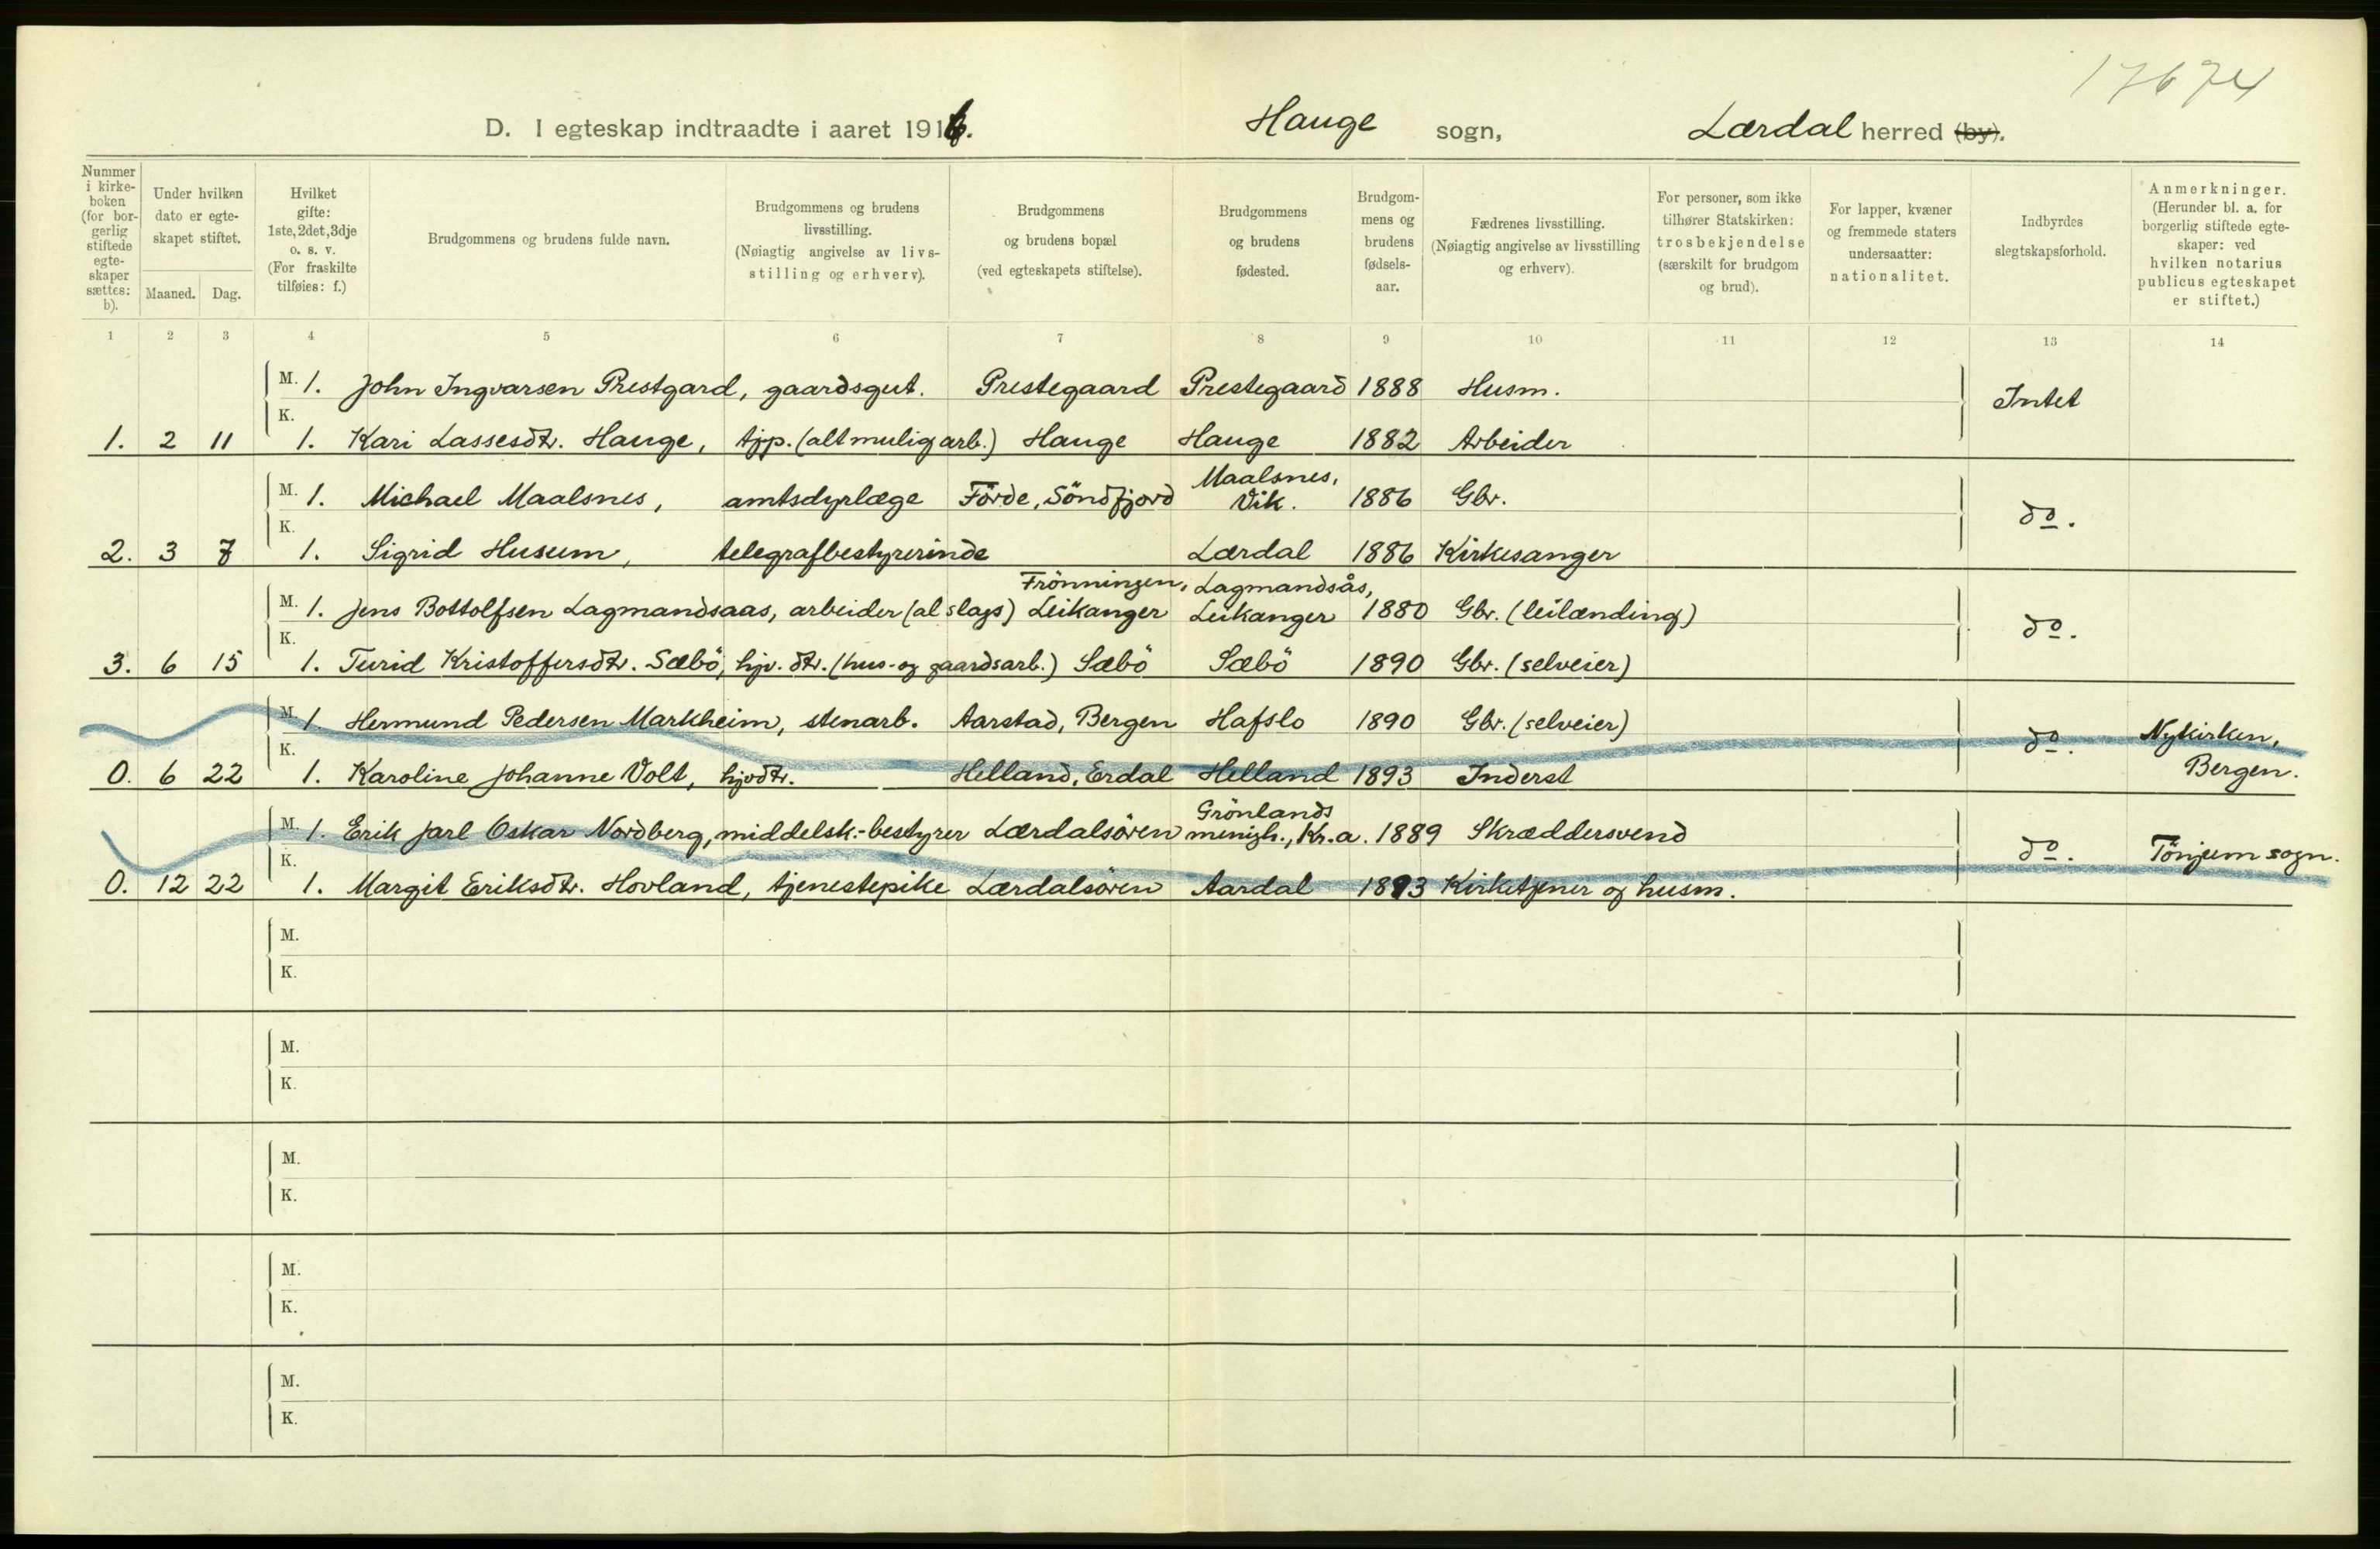 17674
D. I egteskap indtraadte i aaret 1916. Hauge sogn, Lærdal herred (by).
Nummer i kirke-boken (for bor-gerlig stiftede egte-skaper sættes: b).
Under hvilken dato er egte-skapet stiftet.
Maaned. Dag.
Hvilket gifte: 1ste, 2det, 3dje o. s. v. (For fraskilte tilføies: f.)
Brudgommens og brudens fulde navn.
Brudgommens og brudens livsstilling. (Nøiagtig angivelse av livs-stilling og erhverv).
Brudgommens og brudens bopæl (ved egteskapets stiftelse).
Brudgommens og brudens fødested.
Brudgom-mens og brudens fødsels-aar.
Fædrenes livsstilling. (Nøiagtig angivelse av livsstilling og erhverv).
For personer, som ikke tilhører Statskirken: trosbekjendelse (særskilt for brudgom og brud).
For lapper, kvæner og fremmede staters undersaatter: nationalitet.
Indbyrdes slegtskapsforhold.
Anmerkninger. (Herunder bl. a. for borgerlig stiftede egte-skaper: ved hvilken notarius publicus egteskapet er stiftet.)
1 2 3 4 5 6 7 8 9 10 11 12 13 14
M. 1. John Ingvarsen Prestgard, gaardsgut. Prestegaard Prestegaard 1888 Husm. Intet
1. 2 11 K. 1. Kari Lassesdtr. Hauge, tjp. (altmuligarb.) Hauge Hauge 1882 Arbeider
M. 1. Michael Maalsnes, amtsdyrlæge Förde, Söndfjord Maalsnes, Vik. 1886 Gbr. do.
2. 3 7 K. 1. Sigrid Husum, telegrafbestyrerinde Lærdal 1886 Kirkesanger
M. 1. Jens Bottolfsen Lagmandsaas, arbeider (al slags) Frönningen, Leikanger Lagmandsås, Leikanger 1880 Gbr. (leilænding) do.
3. 6 15 K. 1. Turid Kristoffersdtr. Sæbö, hjv. dtr. (hus- og gaardsarb.) Sæbö Sæbö 1890 Gbr. (selveier)
M. 1. Hermund Pedersen Markheim, stenarb. Aarstad, Bergen Hafslo 1890 Gbr. (selveier) do. Nykirken,
0. 6 22 K. 1. Karoline Johanne Volt, hjvdtr. Helland, Erdal Helland 1893 Inderst Bergen.
M. 1. Erik Jarl Oskar Nordberg, middelsk.-bestyrer Lærdalsören Grönlands menigh., Kr.a. 1889 Skræddersvend do. Tönjum sogn.
0. 12 22 K. 1. Margit Eriksdtr. Hovland, tjenestepike Lærdalsören Aardal 1893 Kirketjener og husm.
M.
K.
M.
K.
M.
K.
M.
K.
M.
K.